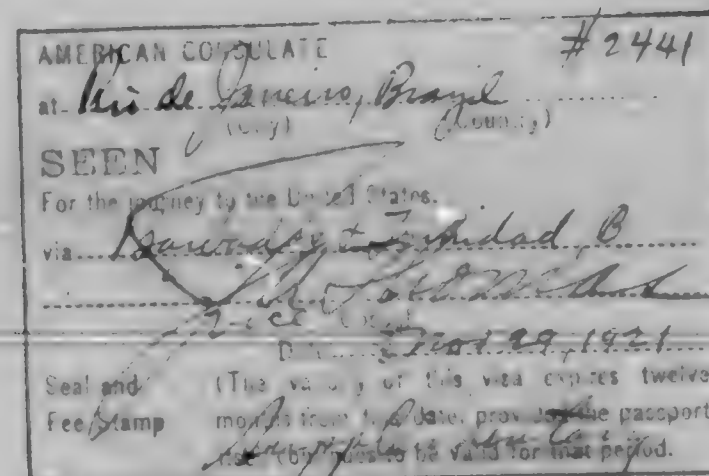 AMERICAN CONSULATE #2441
at Rio de Janeiro, Brazil
(City) (Country)
SEEN
For the journey to the United States.
via Trinidad, B
Vice Consul
Date 29, 1921
Seal and (The validity of this visa expires twelve
Fee Stamp months from this date, provided the passport
continues to be valid for that period.